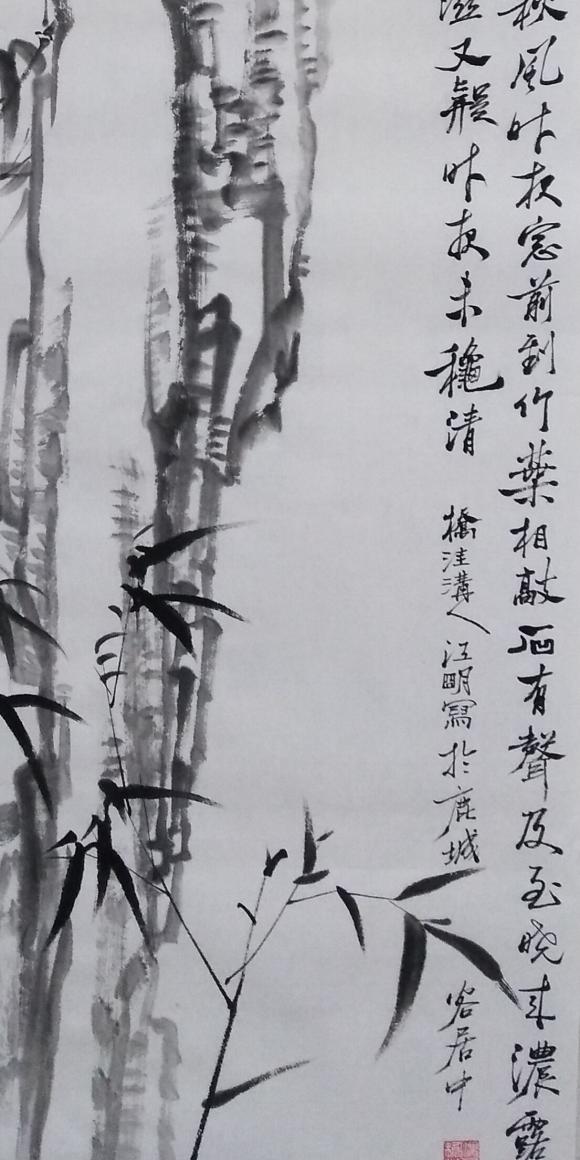 秋風昨夜窓前到竹葉相敲石有聲及至曉来濃露
又疑昨夜未穐清
橋洼溝人江明寫於鹿城
客居中